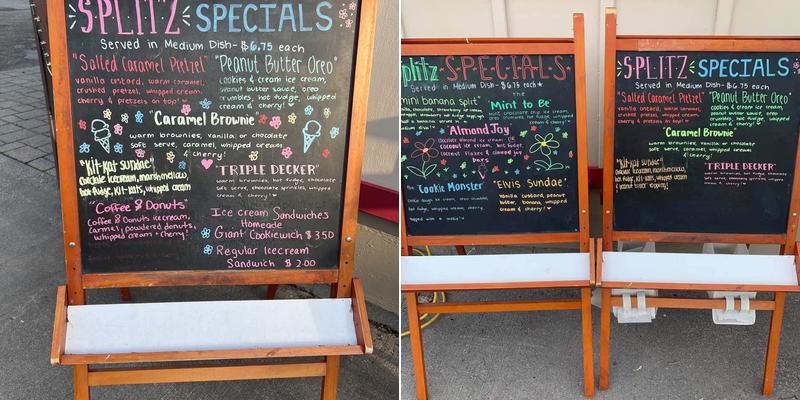 SPLITZ SPECIALS
Served in Medium Dish- $6.75 each
"Salted Caramel Pretzel" "Peanut Butter Oreo"
vanilla custard, warm caramel,
crushed pretzel, whipped cream,
cherry & pretzels on top!
cookies & cream ice cream,
peanut butter sauce, oreo
crumbles, hot fudge, whipped
cream & cherry!
"Caramel Brownie"
warm brownies, vanilla or chocolate
soft serve, caramel, whipped cream
& cherry!
"Kit-Kat Sundae"
chocolate icecream, marshmallow,
hot fudge, kit-kats, whipped cream
"TRIPLE DECKER"
warm brownies, hot fudge, chocolate
soft serve, chocolate sprinkles, whipped
cream &
"Coffee & Donuts"
Coffee & Donuts icecream,
Carmel, powdered donuts,
whipped cream + cherry!
Ice cream Sandwiches
Homeade
Giant Cookiewich $3.50
Regular Icecream
Sandwich $2.00
Splitz SPECIALS
Served in Medium Dish - $6.75 each
mini banana split
the
Mint to Be
mint chocolate chip ice cream,
cream & cherry!
Almond Joy
chocolate almond ice cream, or
coconut ice cream, hot fudge,
coconut flakes & almond joy
bars
"Cookie Monster"
cookie dough ice cream,
hot fudge, whipped cream,
topped with a cookie!
"Elvis Sundae"
vanilla custard, peanut
butter, banana, whipped
cream & cherry!
SPLITZ SPECIALS
Served in Medium Dish - $6.75 each
"Salted Caramel Pretzel" "Peanut Butter Oreo"
vanilla custard, warm caramel,
crushed pretzel, whipped cream,
cherry & pretzels on top!
cookies & cream ice cream,
peanut butter sauce, oreo
crumbles, hot fudge, whipped
cream & cherry!
"Caramel Brownie"
warm brownies, vanilla or chocolate
soft serve, caramel, whipped cream
& cherry!
"Kit-Kat Sundae"
hot fudge, kit-kats, whipped cream
& peanut butter topping!
"TRIPLE DECKER"
warm brownies, hot fudge, chocolate
soft serve, chocolate sprinkles, whipped
cream &